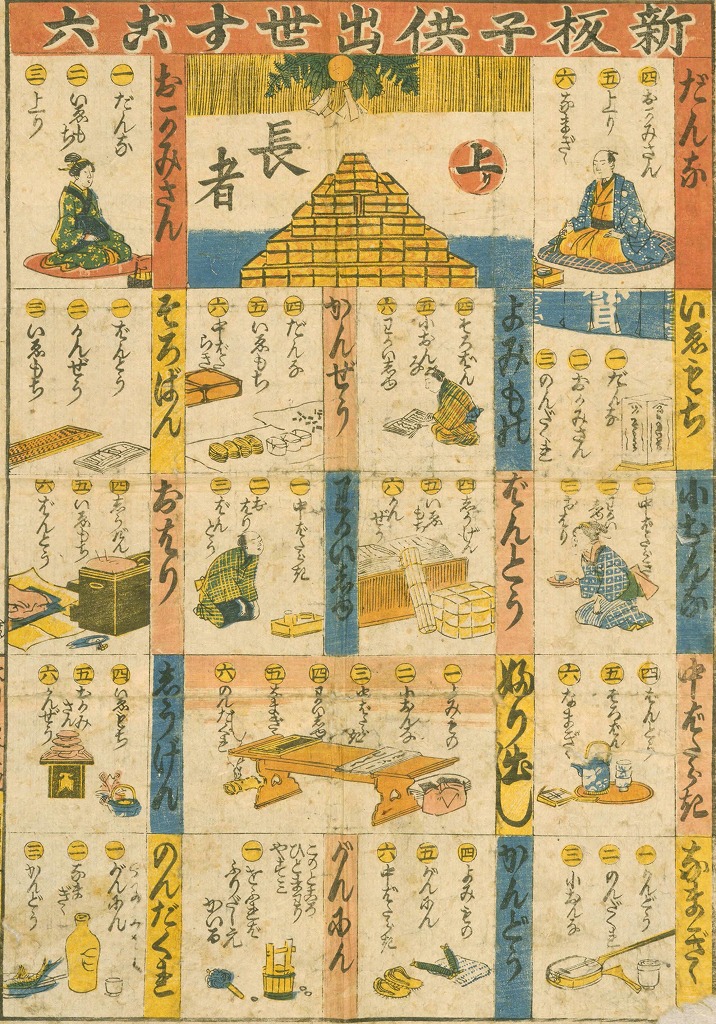 新板子供出世すご六
だんな
四 おかみさん
五 上り
六 なまぎゝ
上り
長者
おかみさん
一 だんな
二 いゑもち
三 上り
いゑもち
一 だんな
二 おかみさん
三 のんだくれ
よみもの
四 そろばん
五 小ぢよんな
かんぜう
四 だんな
五 いゑもち
六 中ばたらき
そろばん
一 ばんとう
二 かんぜう
三 いゑもち
小ぢよんな
一 中ばたらき
ばんとう
四 しうげん
五 いゑもち
六 かんぜう
一 中ばたらき
二 おはり
三 ばんとう
おはり
四 しうげん
五 いゑもち
六 ばんとう
中ばたらき
四 ばんとう
五 そろばん
六 なまぎゝ
婦り出し
一 よみもの
二 小ぢよんな
三 中ばたらき
五 なまぎゝ
六 のんだくれ
しうげん
四 いゑもち
五 おかみさん
六 かんぜう
なまぎゝ
一 かんどう
二 のんだくれ
三 小ぢよんな
かんどう
四 よみもの
五 ぐわんにん
六 中ばたらき
ぐわんにん
このところ
ひとまわり
やすみ
ふりだしえ
かいる
のんだくれ
一 ぐわんにん
二 なまぎゝ
三 かんどう